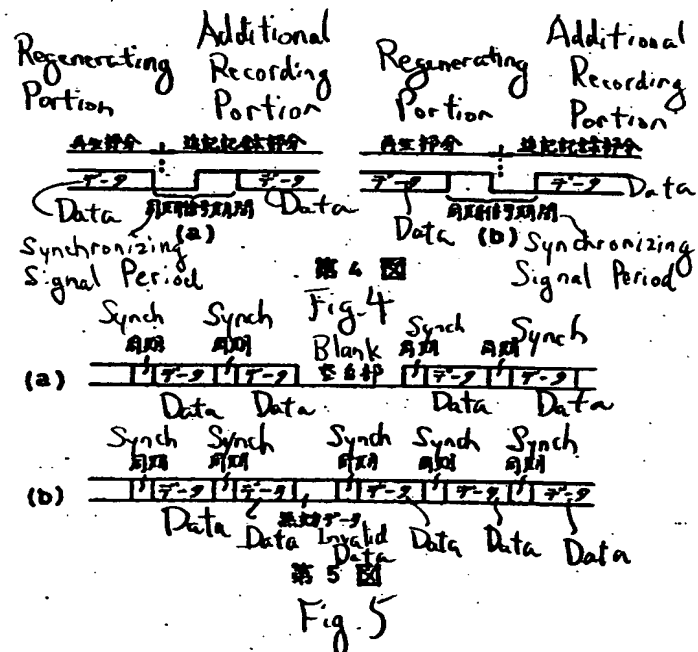 Regenerating Portion
Additional Recording Portion
Regenerating Portion
Additional Recording Portion
再生部分
追記記録部分
再生部分
追記記録部分
データ
データ
データ
データ
Data
同期信号期間
Data
Data
同期信号期間
Data
(a)
(b)
Synchronizing Signal Period
Synchronizing Signal Period
第 4 図
Fig. 4
Synch
Synch
Blank
Synch
Synch
同期
同期
空白部
同期
同期
(a)
データ
データ
データ
データ
Data
Data
Data
Data
Synch
Synch
Synch
Synch
Synch
同期
同期
同期
同期
同期
(b)
データ
データ
データ
データ
データ
Data
Data
無効データ
Invalid Data
Data
Data
Data
第 5 図
Fig. 5